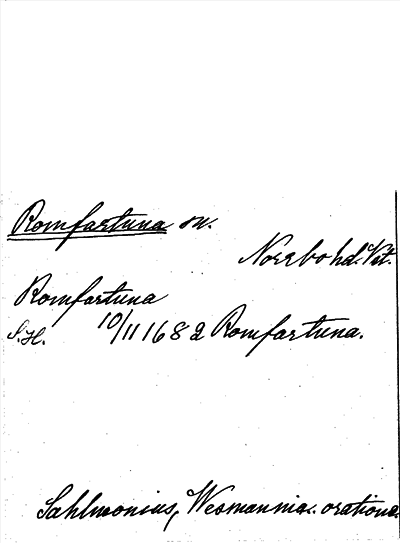 Romfartuna sn.
Norrbo hd. Vstl.
Romfartuna
S.H. 10/11 1682 Romfartuna.
Sahlmonius, Wesmannia. oratione